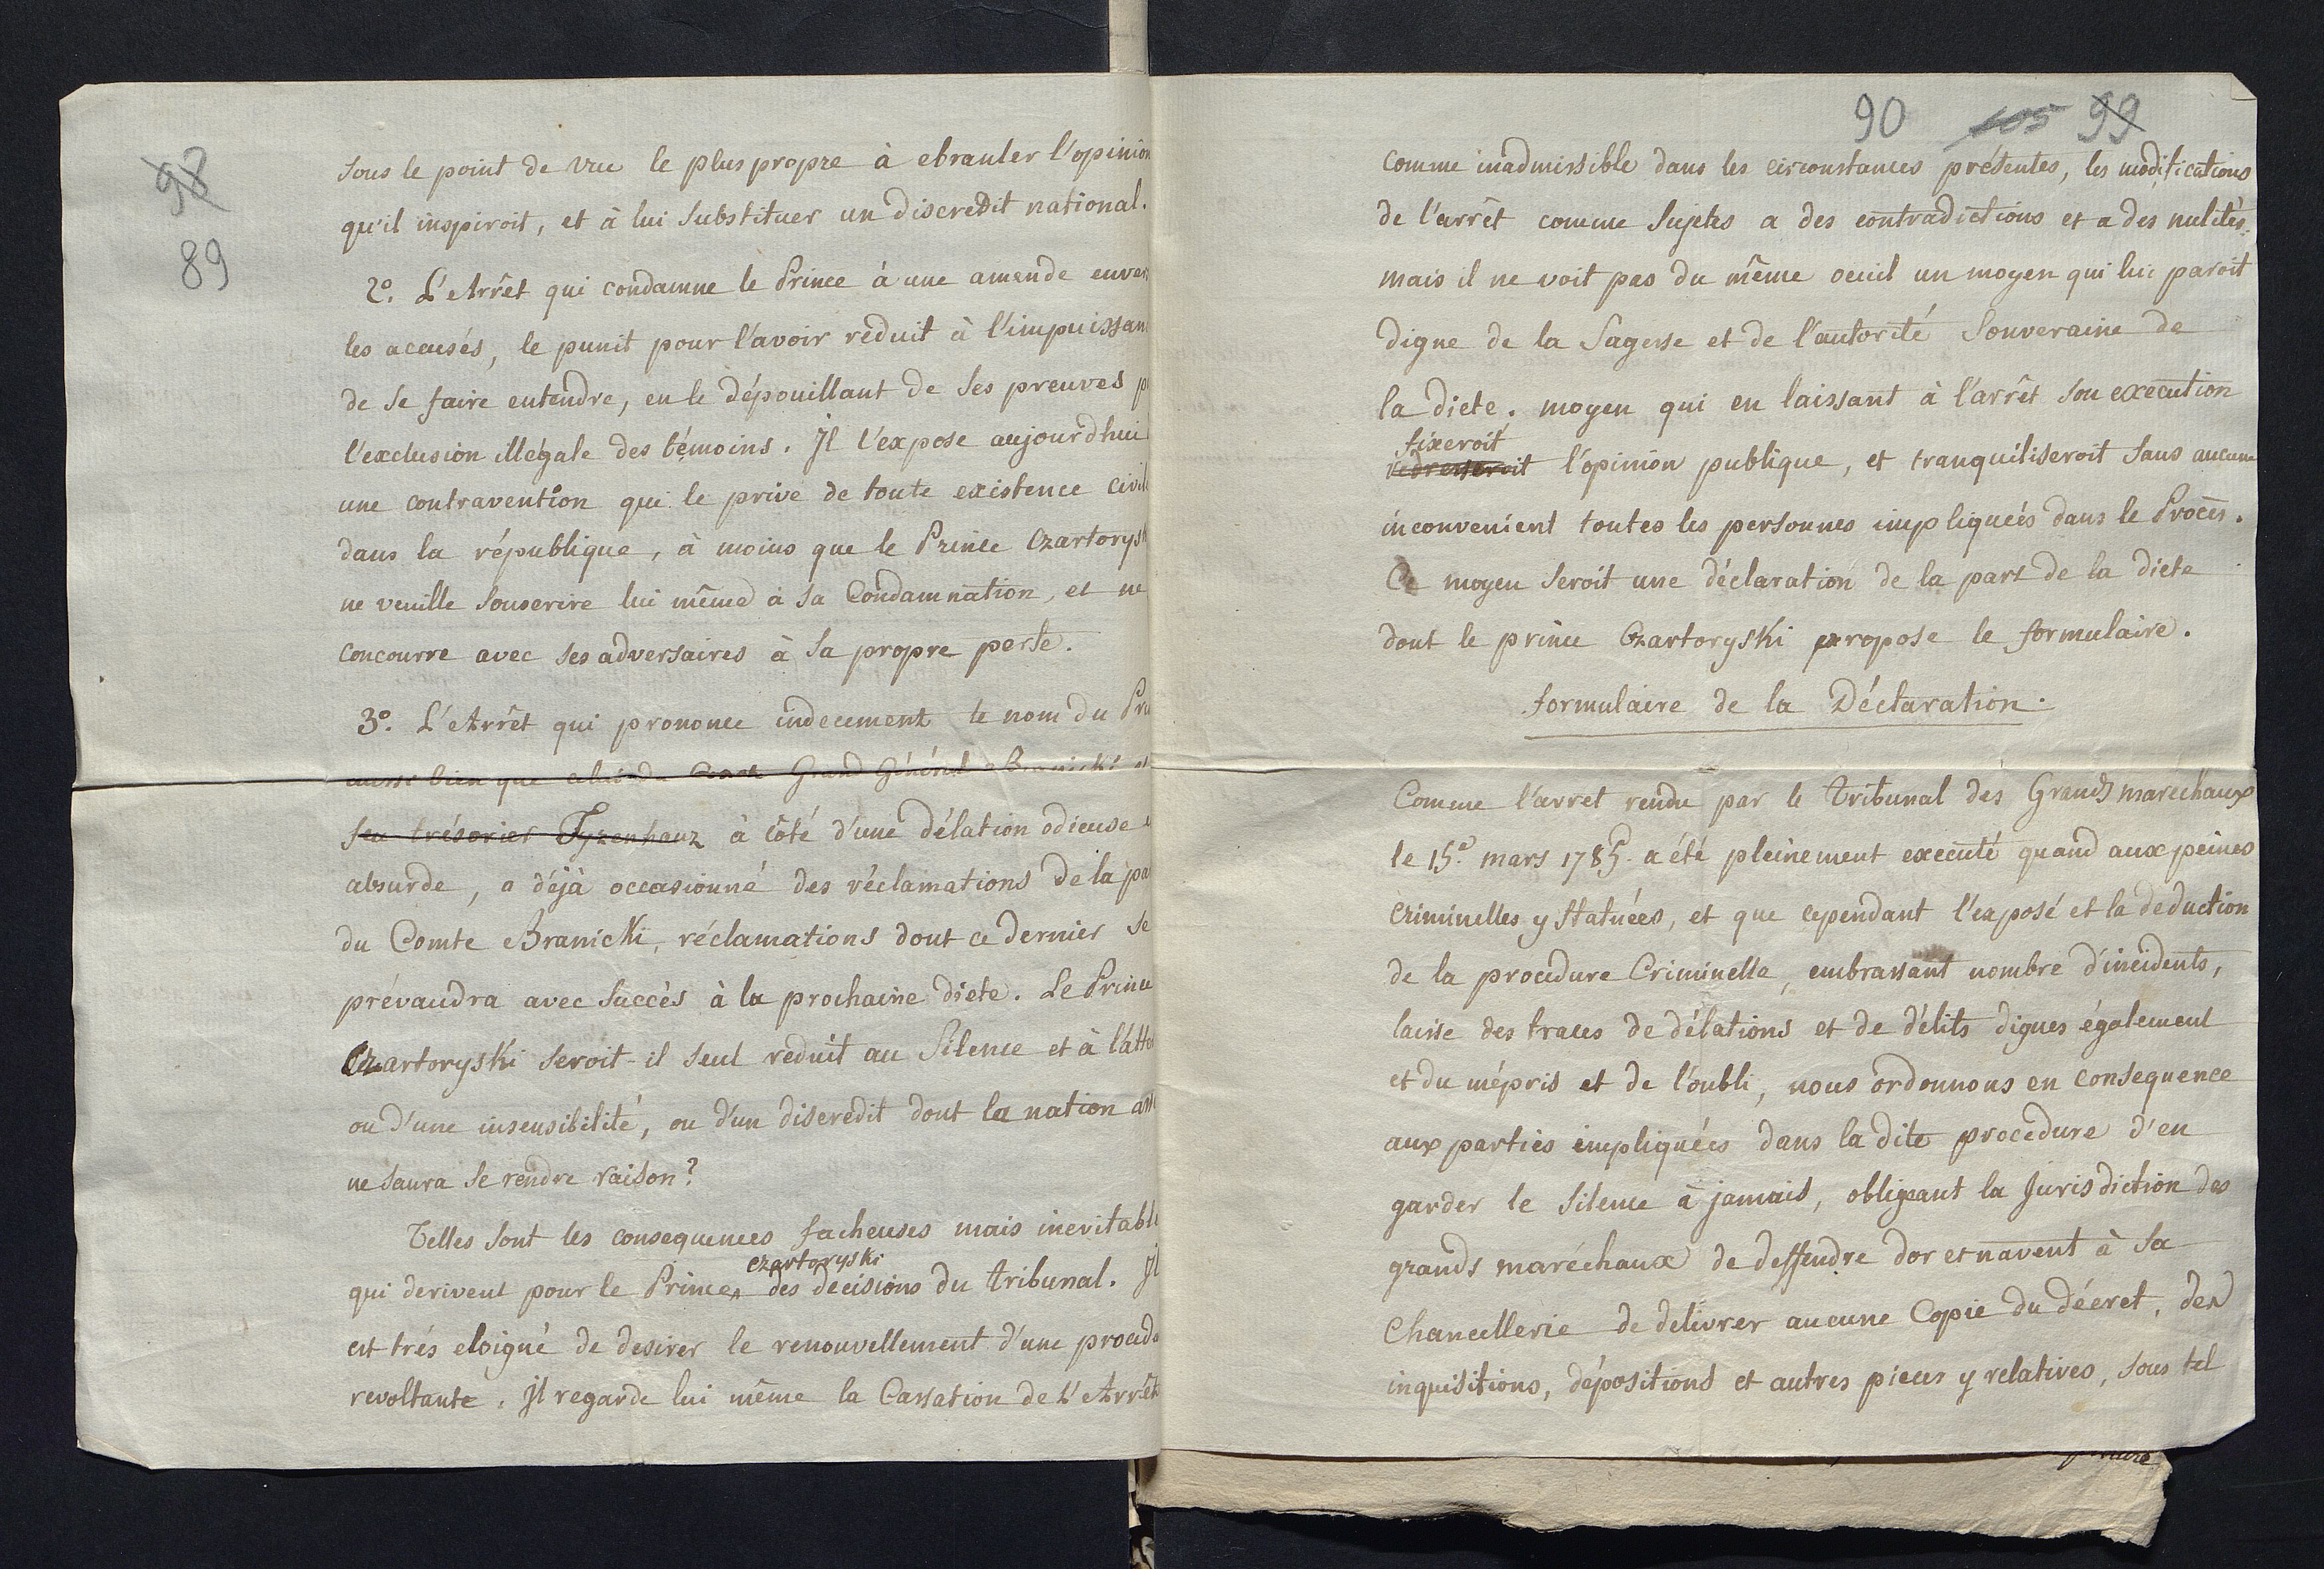 98
89
sous le point de vue le plus propre à ebranler l'opinion
qu'il inspiroit, et à lui substituer un discredit national.
2º. L'Arrêt qui condamne le Prince à une amende enver
les accusés, le punit pour l'avoir réduit à l'impuissan
de se faire entendre, en le dépouillant de ses preuves p
l'exclusion illégale des témoins. Jl l'expose aujourdhui
une contravention qui le prive de toute existence civil
dans la république, à moins que le Prince Czartorysk
ne veuille souscrire lui même à sa Condamnation, et ne
concourre avec ses adversaires à sa propre perte.
3º. L'Arrêt qui prononce indecement le nom du Pri
aussi bien que celui du Grand Général Branicki et
feu trésorier Tyzenhauz à côté d'une délation odieuse
absurde, a déjà occasionné des réclamations de la pa
du Comte Branicki, réclamations dont ce dernier se
prévaudra avec succès à la prochaine diete. Le Prince
Czartoryski seroit-il seul reduit au Silence et à l'atte
ou d'une insensibilité, ou d'un discredit dont la nation
ne saura se rendre raison?
Telles sont les consequences facheuses mais inevitable
czartoryski
qui derivent pour le Prince, des decisions du tribunal. Jl
est trés eloigné de desirer le renouvellement d'une procedu
revoltante. Jl regarde lui même la Cassation de L'Arrêt
90 105 99
comme inadmissible dans les circonstances présentes, les modifications
de l'arrêt comme sujetes a des contradictions et a des nulités.
mais il ne voit pas du même oeuil un moyen qui lui paroit
digne de la Sagesse et de l'autorité Souveraine de
la diete. moyen qui en laissant à l'arrêt son execution
fixeroit
redresseroit l'opinion publique, et tranquiliseroit sans aucune
inconvenient toutes les personnes impliqueés dans le Procès.
Ce moyen seroit une déclaration de la part de la diete
dont le prince Czartoryski propose le formulaire.
formulaire de la Déclaration.
Comme l'arret rendu par le tribunal des Grands maréchaux
le 15e. mars 1785. a été pleinement executé quand aux peines
criminelles y statuées, et que cependant l'exposé et la deduction
de la procedure Criminelle, embrassant nombre d'incidents,
laisse des traces de délations et de délits dignes également
et du mépris et de l'oubli, nous ordonnons en consequence
aux parties impliquées dans la dite procedure d'en
garder le silence à jamais, obligeant la Jurisdiction des
grands maréchaux de deffendre dor et navent à sa
Chancellerie de delivrer aucune Copie du décret, des
inquisitions, dépositions et autres pieces y relatives, sous tel